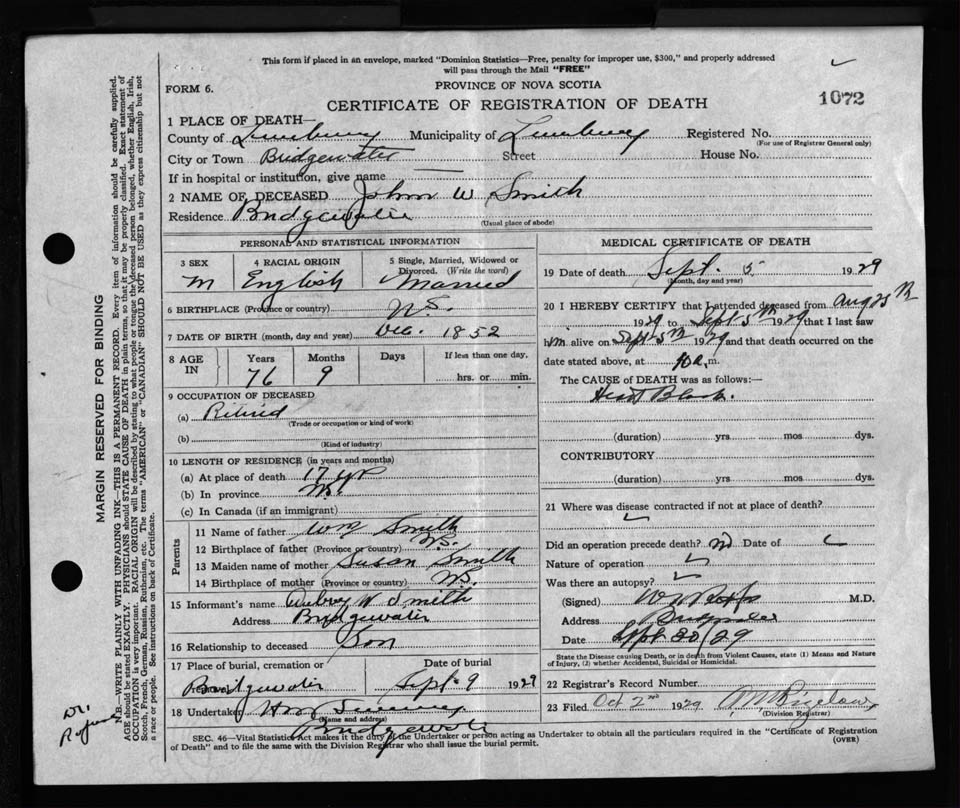 This form if placed in an envelope, marked "Dominion Statistics—Free, penalty for improper use, $300," and properly addressed
will pass through the Mail "FREE"
FORM 6.
PROVINCE OF NOVA SCOTIA
CERTIFICATE OF REGISTRATION OF DEATH
1072
1 PLACE OF DEATH—
County of Lunenburg Municipality of Lunenburg Registered No.
(For use of Registrar General only)
City or Town Bridgewater Street House No.
If in hospital or institution, give name
2 NAME OF DECEASED John W Smith
Residence Bridgewater
(Usual place of abode)
PERSONAL AND STATISTICAL INFORMATION
3 SEX 4 RACIAL ORIGIN 5 Single, Married, Widowed or Divorced. (Write the word)
M English Married
6 BIRTHPLACE (Province or country) N.S.
7 DATE OF BIRTH (month, day and year) Dec. 1852
8 AGE IN Years Months Days If less than one day,
76 9 hrs. or min.
9 OCCUPATION OF DECEASED
(a) Retired
(Trade or occupation or kind of work)
(b)
(Kind of industry)
10 LENGTH OF RESIDENCE (in years and months)
(a) At place of death 17 yr
(b) In province
(c) In Canada (if an immigrant)
Parents
11 Name of father Wm Smith
12 Birthplace of father (Province or country) N.S.
13 Maiden name of mother Susan Smith
14 Birthplace of mother (Province or country) N.S.
15 Informant's name Aubrey W Smith
Address Bridgewater
16 Relationship to deceased Son
17 Place of burial, cremation or Date of burial
Bridgewater Sept 9 1929
18 Undertaker
(Name and address)
Bridgewater
MEDICAL CERTIFICATE OF DEATH
19 Date of death Sept. 5 1929
(Month, day and year)
20 I HEREBY CERTIFY that I attended deceased from Aug 25th
1929 to Sept 5th 1929 that I last saw
him alive on Sept 5th 1929 and that death occurred on the
date stated above, at 10 a.m.
The CAUSE of DEATH was as follows:—
Heart Block.
(duration) yrs mos dys.
CONTRIBUTORY
(duration) yrs mos dys.
21 Where was disease contracted if not at place of death?
Did an operation precede death? no Date of
Nature of operation
Was there an autopsy?
(Signed) M.D.
Address
Date Sept 30/29
State the Disease causing Death, or in death from Violent Causes, state (1) Means and Nature
of Injury, (2) whether Accidental, Suicidal or Homicidal.
22 Registrar's Record Number
23 Filed Oct 2nd 1929
(Division Registrar)
SEC. 46—Vital Statistics Act makes it the duty of the Undertaker or person acting as Undertaker to obtain all the particulars required in the "Certificate of Registration
of Death" and to file the same with the Division Registrar who shall issue the burial permit.
(OVER)
MARGIN RESERVED FOR BINDING
N.B.—WRITE PLAINLY WITH UNFADING INK—THIS IS A PERMANENT RECORD. Every item of information should be carefully supplied.
AGE should be stated EXACTLY. PHYSICIANS should STATE CAUSE OF DEATH in plain terms, so that it may be properly classified. Exact statement of
OCCUPATION is very important. RACIAL ORIGIN will be described by stating to what people or tongue the deceased person belonged, whether English, Irish,
Scotch, French, German, Russian, Ruthenian, etc. The terms "AMERICAN" or "CANADIAN" SHOULD NOT BE USED as they express citizenship but not
a race of people. See instructions on back of Certificate.
Dr.